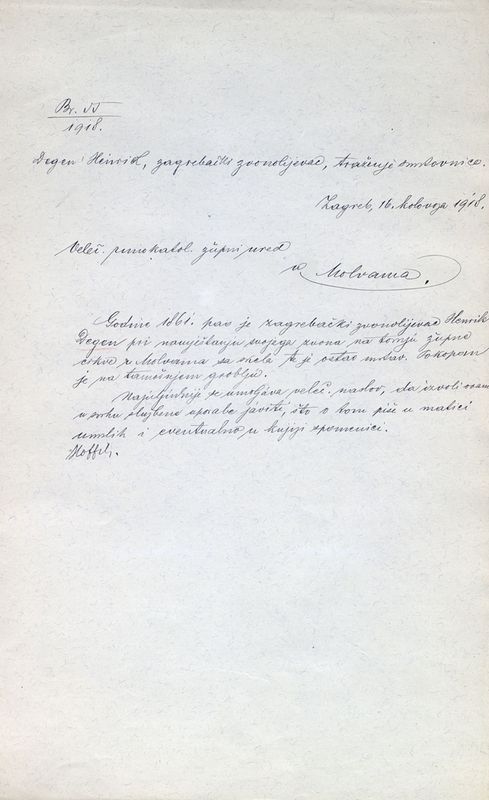 Br. 55
1918.
Degen Henrik, zagrebački zvonolijevac, traženje smrtovnice.
Zagreb, 16. kolovoza 1918.
Veleč. rimokatol. župni ured
u Molvama.
Godine 1861. pao je zagrebački zvonolijevac Henrik
Degen pri namještanju svojega zvona na tornju župne
crkve u Molvama sa skele te je ostao mrtav. Pokopan
je na tamošnjem groblju.
Najuljudnije se umoljava velеč. naslov, da izvoli ovamo
u svrhu službene uporabe javiti, što o tom piše u matici
umrlih i eventualno u knjizi spomenici.